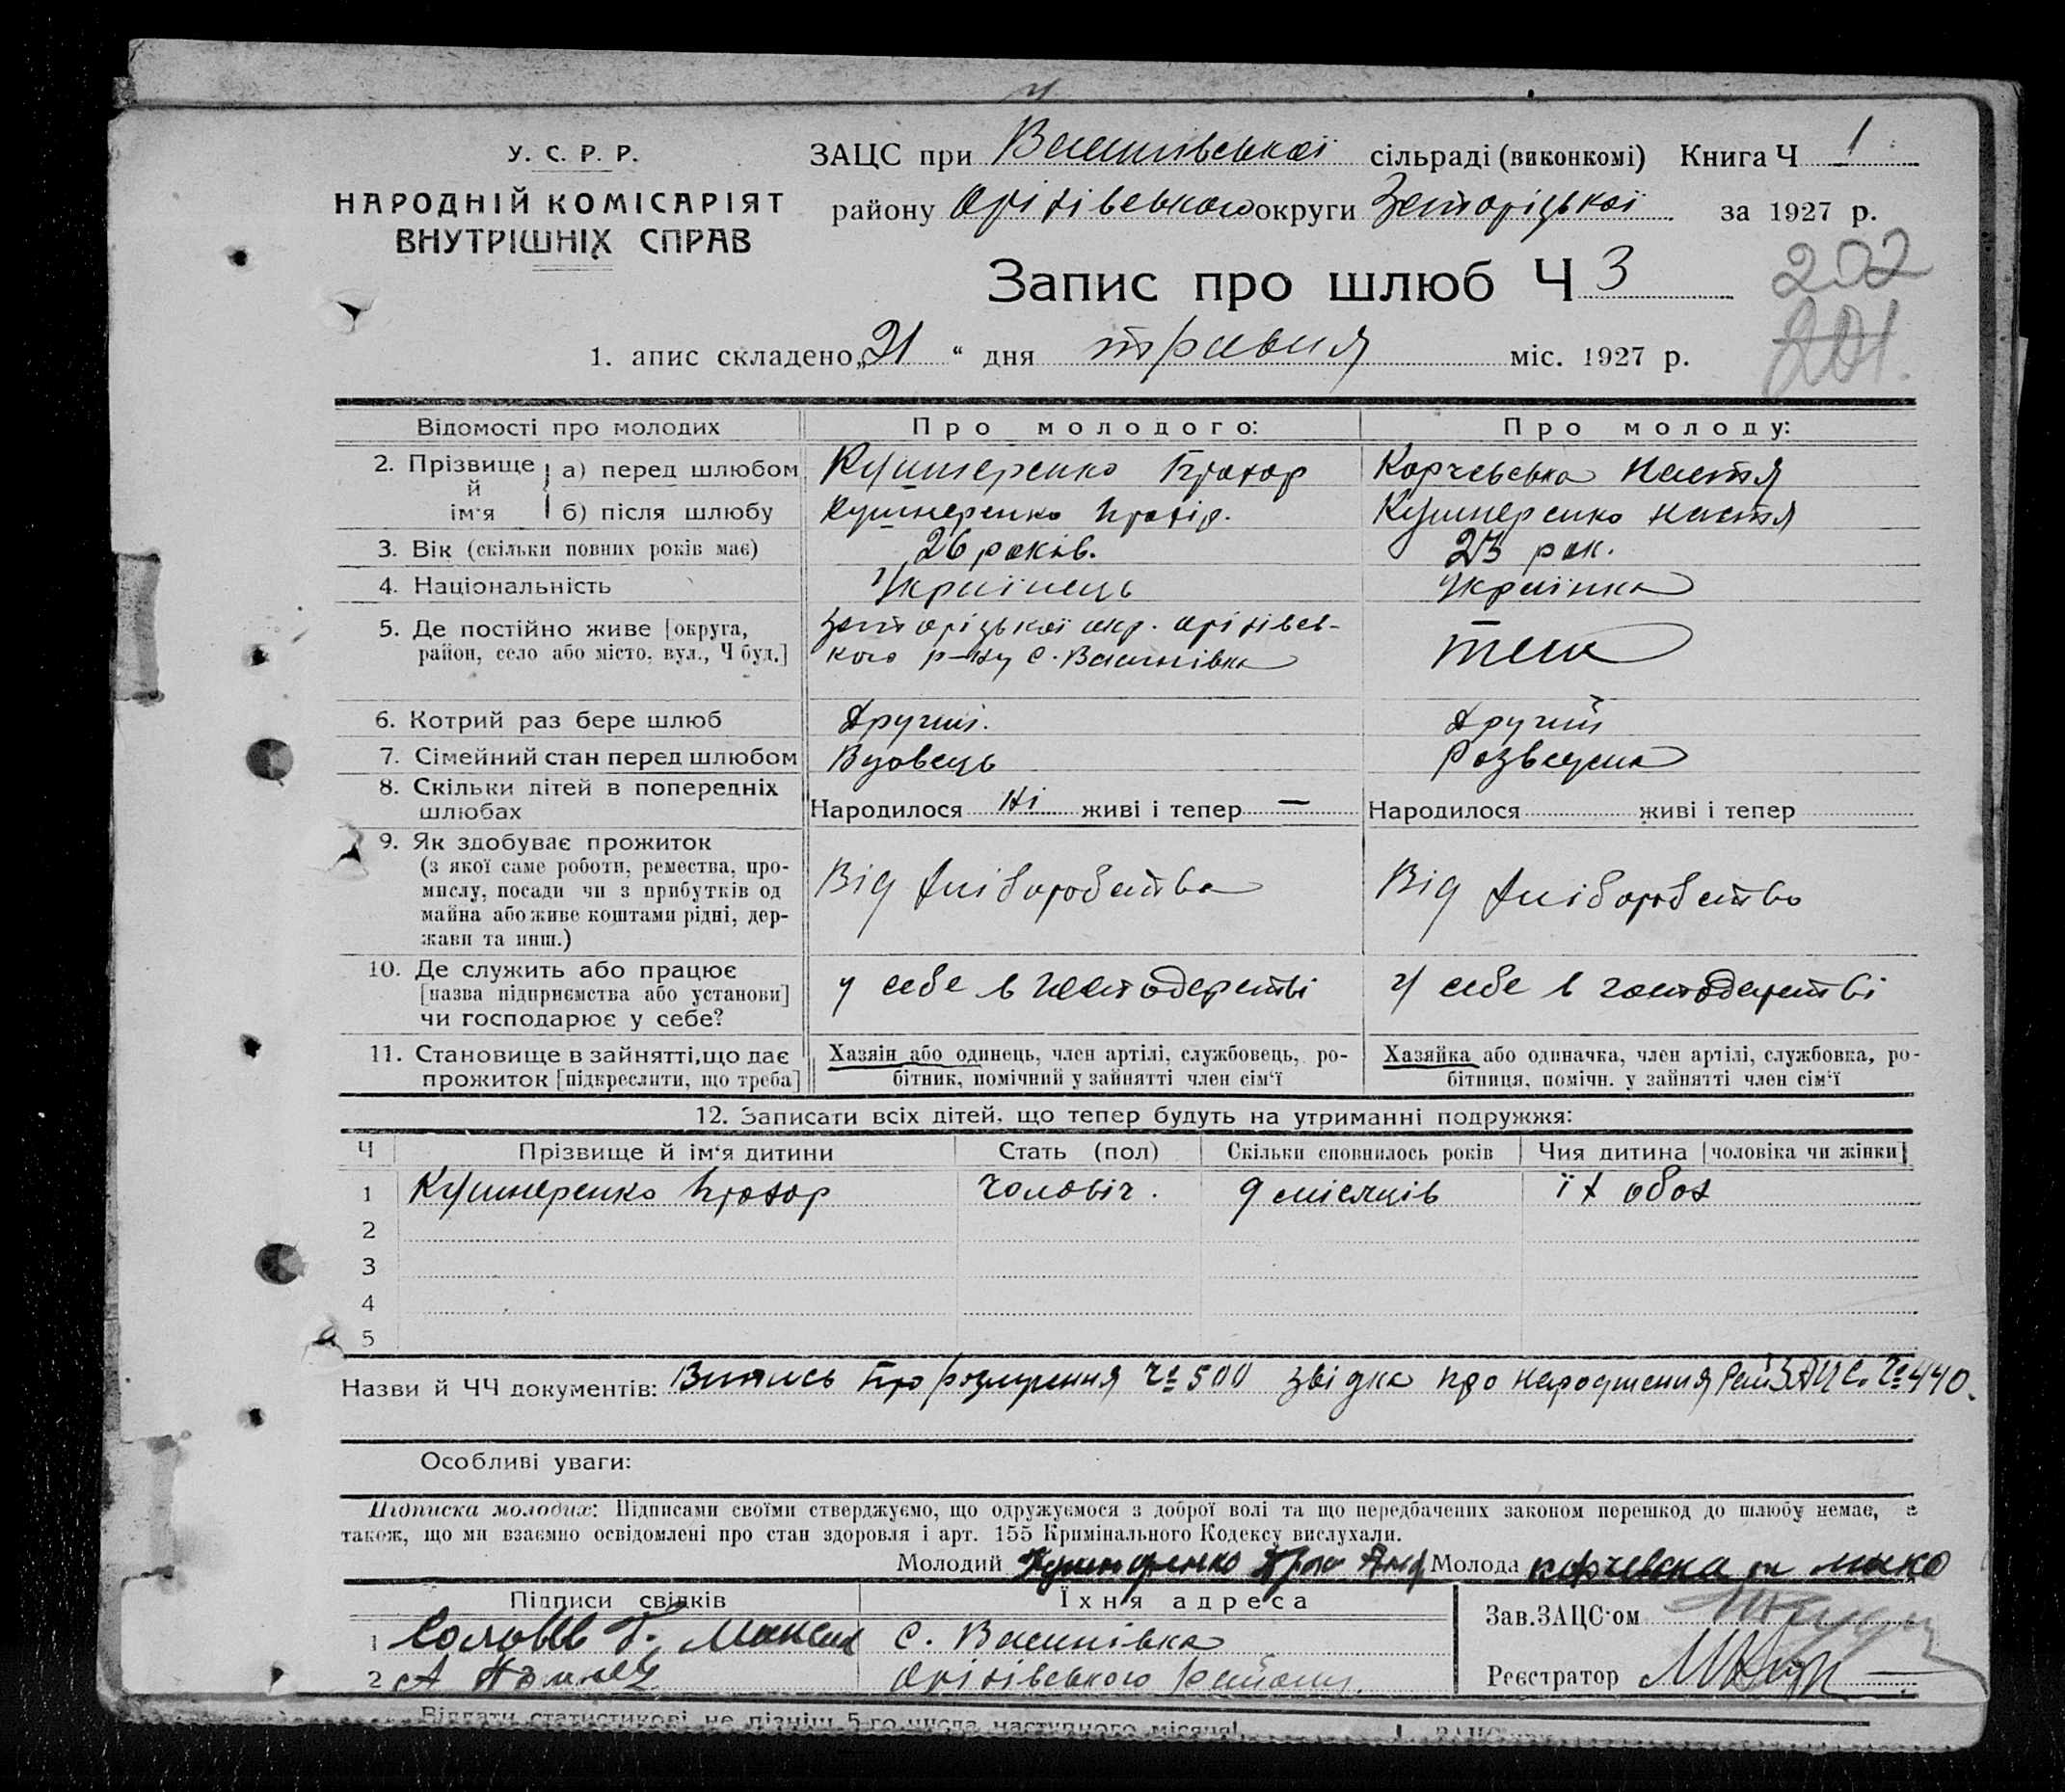 У. С. Р. Р.
НАРОДНІЙ КОМІСАРІЯТ
ВНУТРІШНІХ СПРАВ
ЗАЦС при Васинівської сільраді (виконкомі) Книга Ч 1
району Оріхівського округи Запоріцької за 1927 р.
Запис про шлюб Ч 3
202
201.
1. апис складено „21“ дня травня міс. 1927 р.
Відомості про молодих Про молодого: Про молоду:
2. Прізвище й ім'я а) перед шлюбом Кушнеренко Прохор Корчевська Настя
б) після шлюбу Кушнеренко Прохір. Кушнеренко Настя
3. Вік (скільки повних років має) 26 років. 23 рок.
4. Національність Українець Українка
5. Де постійно живе [округа, район, село або місто, вул., Ч буд.] Запоріцької окр. Оріхівсь-
кого р-ну с. Васинівка теж
6. Котрий раз бере шлюб другий. другий
7. Сімейний стан перед шлюбом Вдовець Розведена
8. Скільки дітей в попередніх шлюбах Народилося ні живі і тепер — Народилося живі і тепер
9. Як здобуває прожиток
(з якої саме роботи, ремества, про-
мислу, посади чи з прибутків од
майна або живе коштами рідні, дер-
жави та инш.) Від хліборобства Від хліборобства
10. Де служить або працює
[назва підприємства або установи]
чи господарює у себе? у себе в господарстві у себе в господарстві
11. Становище в зайнятті, що дає
прожиток [підкреслити, що треба]
Хазяін або одинець, член артілі, службовець, ро-
бітник, помічний у зайнятті член сім'ї
Хазяйка або одиначка, член артілі, службовка, ро-
бітниця, помічн. у зайнятті член сім'ї
12. Записати всіх дітей, що тепер будуть на утриманні подружжя:
Ч Прізвище й ім'я дитини Стать (пол) Скільки сповнилось років Чия дитина [чоловіка чи жінки]
1 Кушнеренко Прохор чоловіч. 9 місяців їх обох
2
3
4
5
Назви й ЧЧ документів: Випись про розлучення Ч 500 звідка про народження РайЗАЦС. Ч 440.
Особливі уваги:
Підписка молодих: Підписами своїми стверджуємо, що одружуємося з доброї волі та що передбачених законом перешкод до шлюбу немає, а
також, що ми взаємно освідомлені про стан здоровля і арт. 155 Кримінального Кодексу вислухали.
Молодий Кушнеренко Молода Корчевска
Підписи свідків Їхня адреса Зав. ЗАЦС'ом
1 с. Васинівка
2 Оріхівського району. Реєстратор
Віддати статистикові не пізніш 5-го числа наступного місяця!